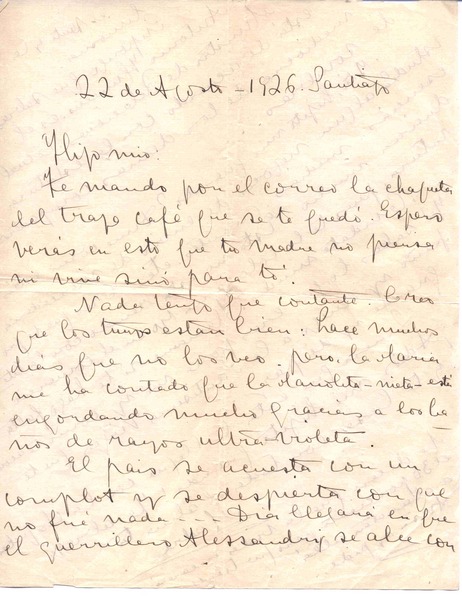 22 de Agosto - 1926. Santiago
Hijo mio:
Te mando por el correo la chaqueta
del traje café que se te quedó. Espero
verás en esto que tu madre no piensa
ni vive sinó para tí.
Nada tengo que contarte. Creo
que los tuyos estan bien: hace muchos
días que no los veo. pero, la María
me ha contado que la Manolita-nieta-está
engordando mucho gracias a los ba
ños de rayos ultra-violeta.
El pais se acuesta con un
complot y se despierta con que
no fué nada ---- Día llegará en que
el guerrillero Alessandri se alce con